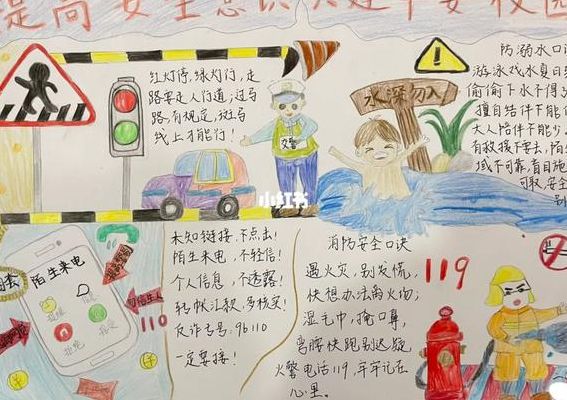 提高安全意识 共建平安校园
红灯停，绿灯门，走
路要走人门道；过马
路，有规定，斑马
线上才能门！
交警
小红书
水深勿入
防溺水口诀
游泳戏水夏日
偷偷下水不得
擅自结伴不能
大人陪伴不能少
有救援不要去，陌生
域不可靠，盲目施
可取，安全
别
陌生来电
110
未知链接，不点击！
陌生来电，不轻信！
个人信息，不透露！
转帐汇款，多核实！
反诈专号：96110
一定要接！
消防安全口诀
遇火灾，别发慌，
快想办法离火场；
湿毛巾，掩口鼻，
弯腰快跑别迟疑
火警电话119，牢牢记在
心里。
119